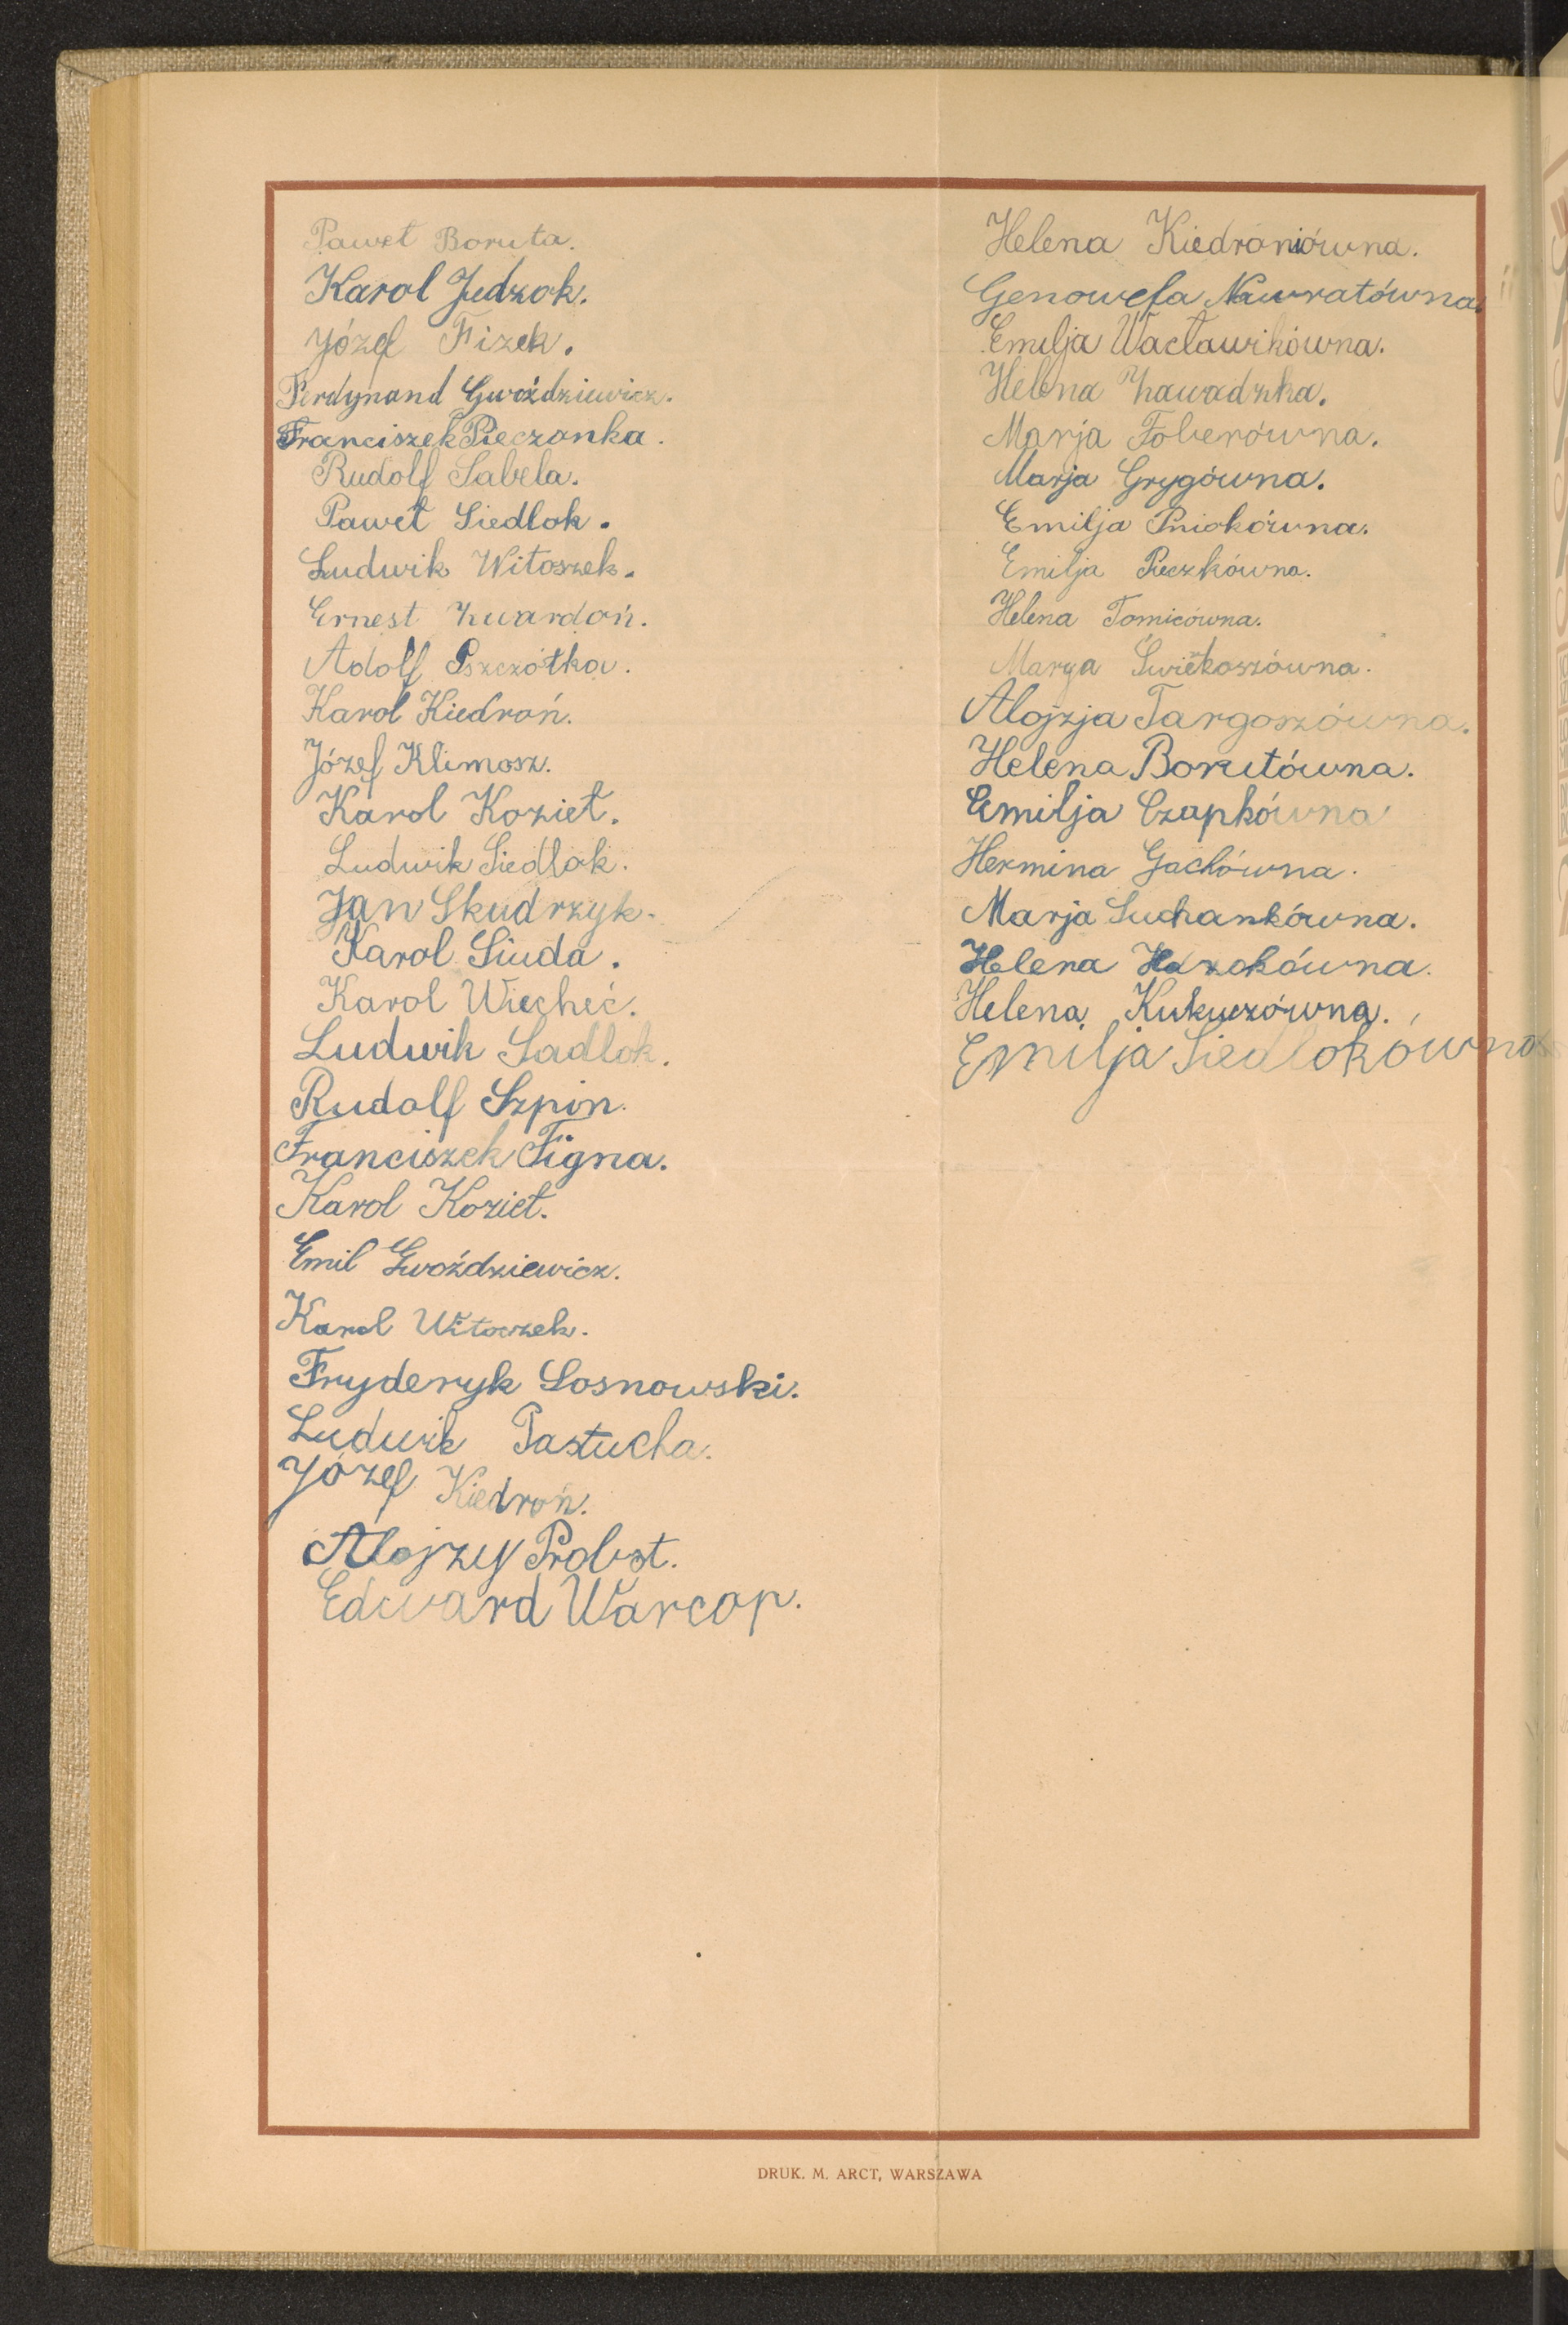 Paweł Boruta.
Karol Judzok.
Józef Fizek.
Ferdynand Gwoździewicz.
Franciszek Pieczonka.
Rudolf Sabela.
Paweł Siedlok.
Ludwik Witoszek.
Ernest Zwardoń.
Adolf Pszczółka.
Karol Kiedroń.
Józef Klimosz.
Karol Kozieł.
Ludwik Siedlok.
Jan Skudrzyk.
Karol Siuda.
Karol Wiecheć.
Ludwik Sadlok.
Rudolf Szpin.
Franciszek Figna.
Karol Kozieł.
Emil Gwoździewicz.
Karol Witoszek.
Fryderyk Sosnowski.
Ludwik Pastucha.
Józef Kiedroń.
Alojzy Probst.
Edward Warcop.
Helena Kiedroniówna.
Genowefa Nawratówna.
Emilja Wacławikówna.
Helena Zawadzka.
Marja Foberówna.
Marja Grygówna.
Emilja Pniokówna.
Emilja Pieczkówna.
Helena Tomicówna.
Marya
Alojzja Targoszówna.
Helena Borutówna.
Emilja Czapkówna
Hermina Gachówna.
Marja Suchankówna.
Helena
Helena Kukuczówna.
Emilja Siedlokówna
DRUK. M. ARCT, WARSZAWA